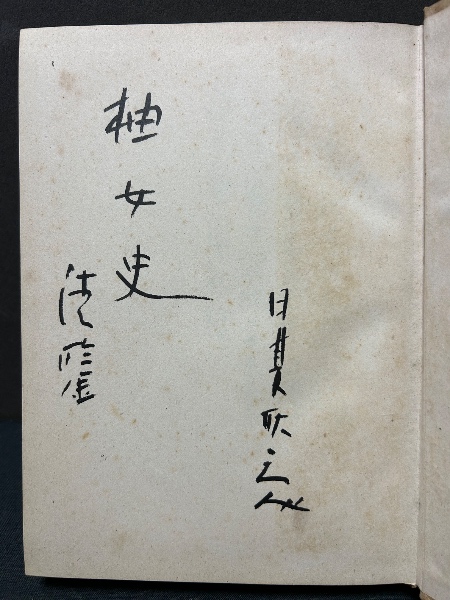 日夏耿之介
柚女史